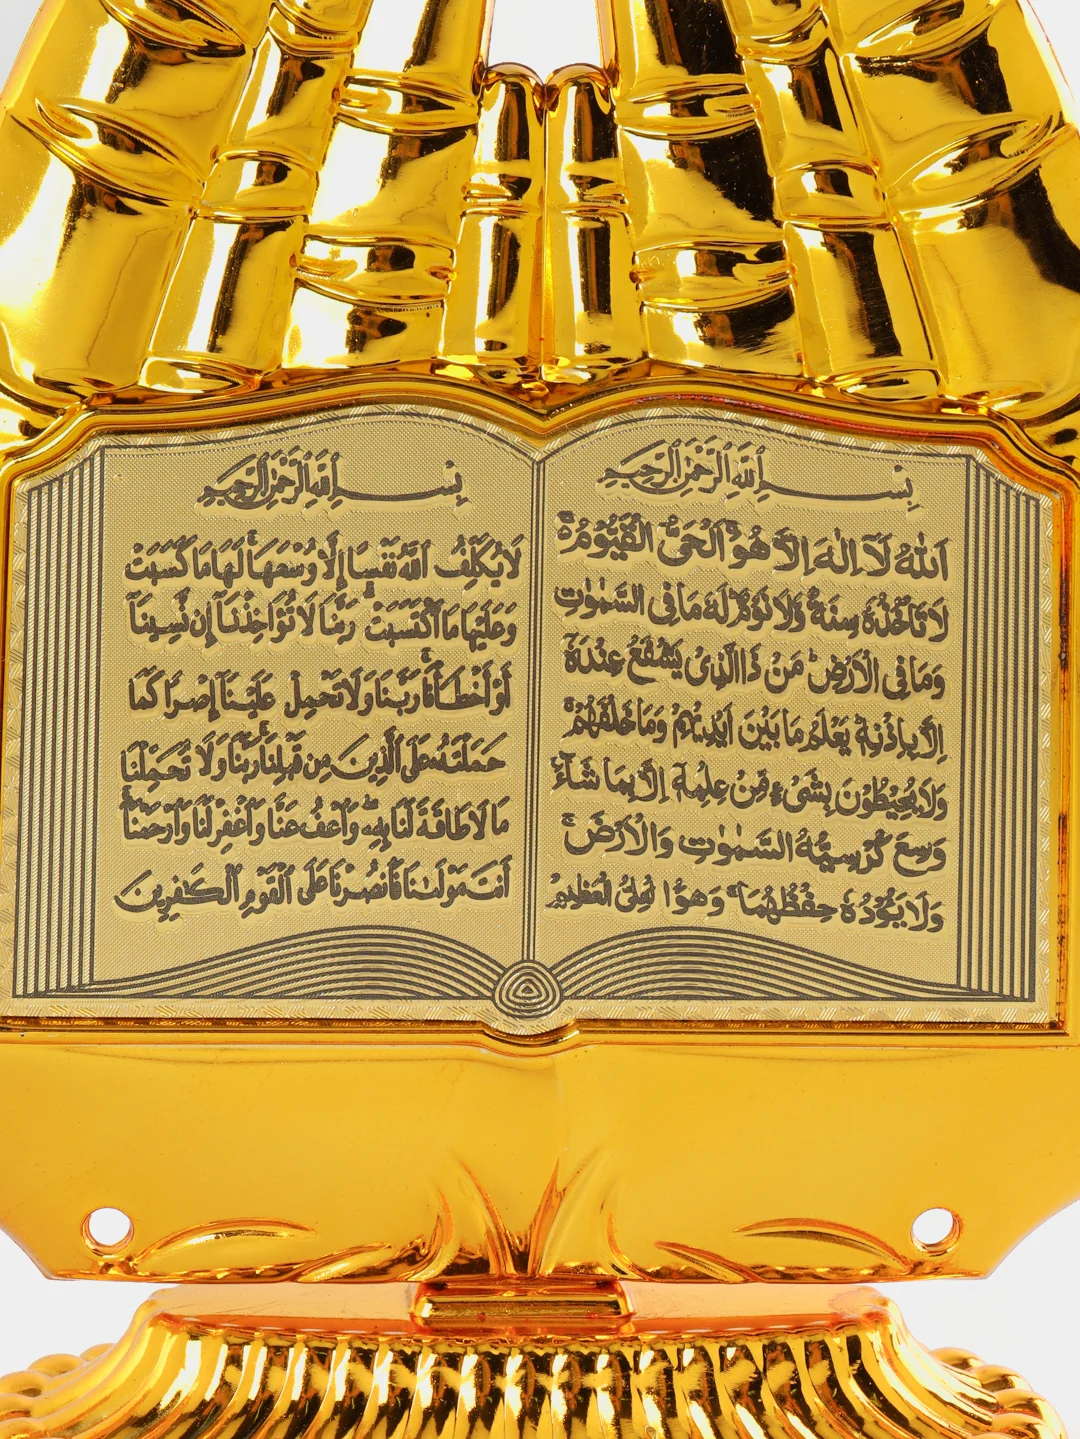 بِسْمِ اللهِ الرَّحْمٰنِ الرَّحِيمِ
اَللهُ لَآ اِلٰهَ اِلَّا هُوَ ۚ اَلْحَىُّ الْقَيُّوْمُ ۚ
لَا تَاْخُذُهٗ سِنَةٌ وَّلَا نَوْمٌ ؕ لَهٗ مَا فِى السَّمٰوٰتِ
وَمَا فِى الْاَرْضِ ؕ مَنْ ذَا الَّذِىْ يَشْفَعُ عِنْدَهٗٓ
اِلَّا بِاِذْنِهٖ ؕ يَعْلَمُ مَا بَيْنَ اَيْدِيْهِمْ وَمَا خَلْفَهُمْ ۚ
وَلَا يُحِيْطُوْنَ بِشَىْءٍ مِّنْ عِلْمِهٖٓ اِلَّا بِمَا شَآءَ ۚ
وَسِعَ كُرْسِيُّهُ السَّمٰوٰتِ وَالْاَرْضَ ۚ
وَلَا يَئُوْدُهٗ حِفْظُهُمَا ۚ وَهُوَ الْعَلِىُّ الْعَظِيْمُ
بِسْمِ اللهِ الرَّحْمٰنِ الرَّحِيمِ
لَا يُكَلِّفُ اللّٰهُ نَفْسًا إِلَّا وُسْعَهَا ۚ لَهَا مَا كَسَبَتْ
وَعَلَيْهَا مَا اكْتَسَبَتْ ۗ رَبَّنَا لَا تُؤَاخِذْنَآ إِن نَّسِينَآ
أَوْ أَخْطَأْنَا ۚ رَبَّنَا وَلَا تَحْمِلْ عَلَيْنَآ إِصْرًا كَمَا
حَمَلْتَهُ عَلَى الَّذِينَ مِن قَبْلِنَا ۚ رَبَّنَا وَلَا تُحَمِّلْنَا
مَا لَا طَاقَةَ لَنَا بِهِ ۖ وَاعْفُ عَنَّا وَاغْفِرْ لَنَا وَارْحَمْنَا ۚ
أَنتَ مَوْلَىٰنَا فَانصُرْنَا عَلَى الْقَوْمِ الْكَٰفِرِينَ